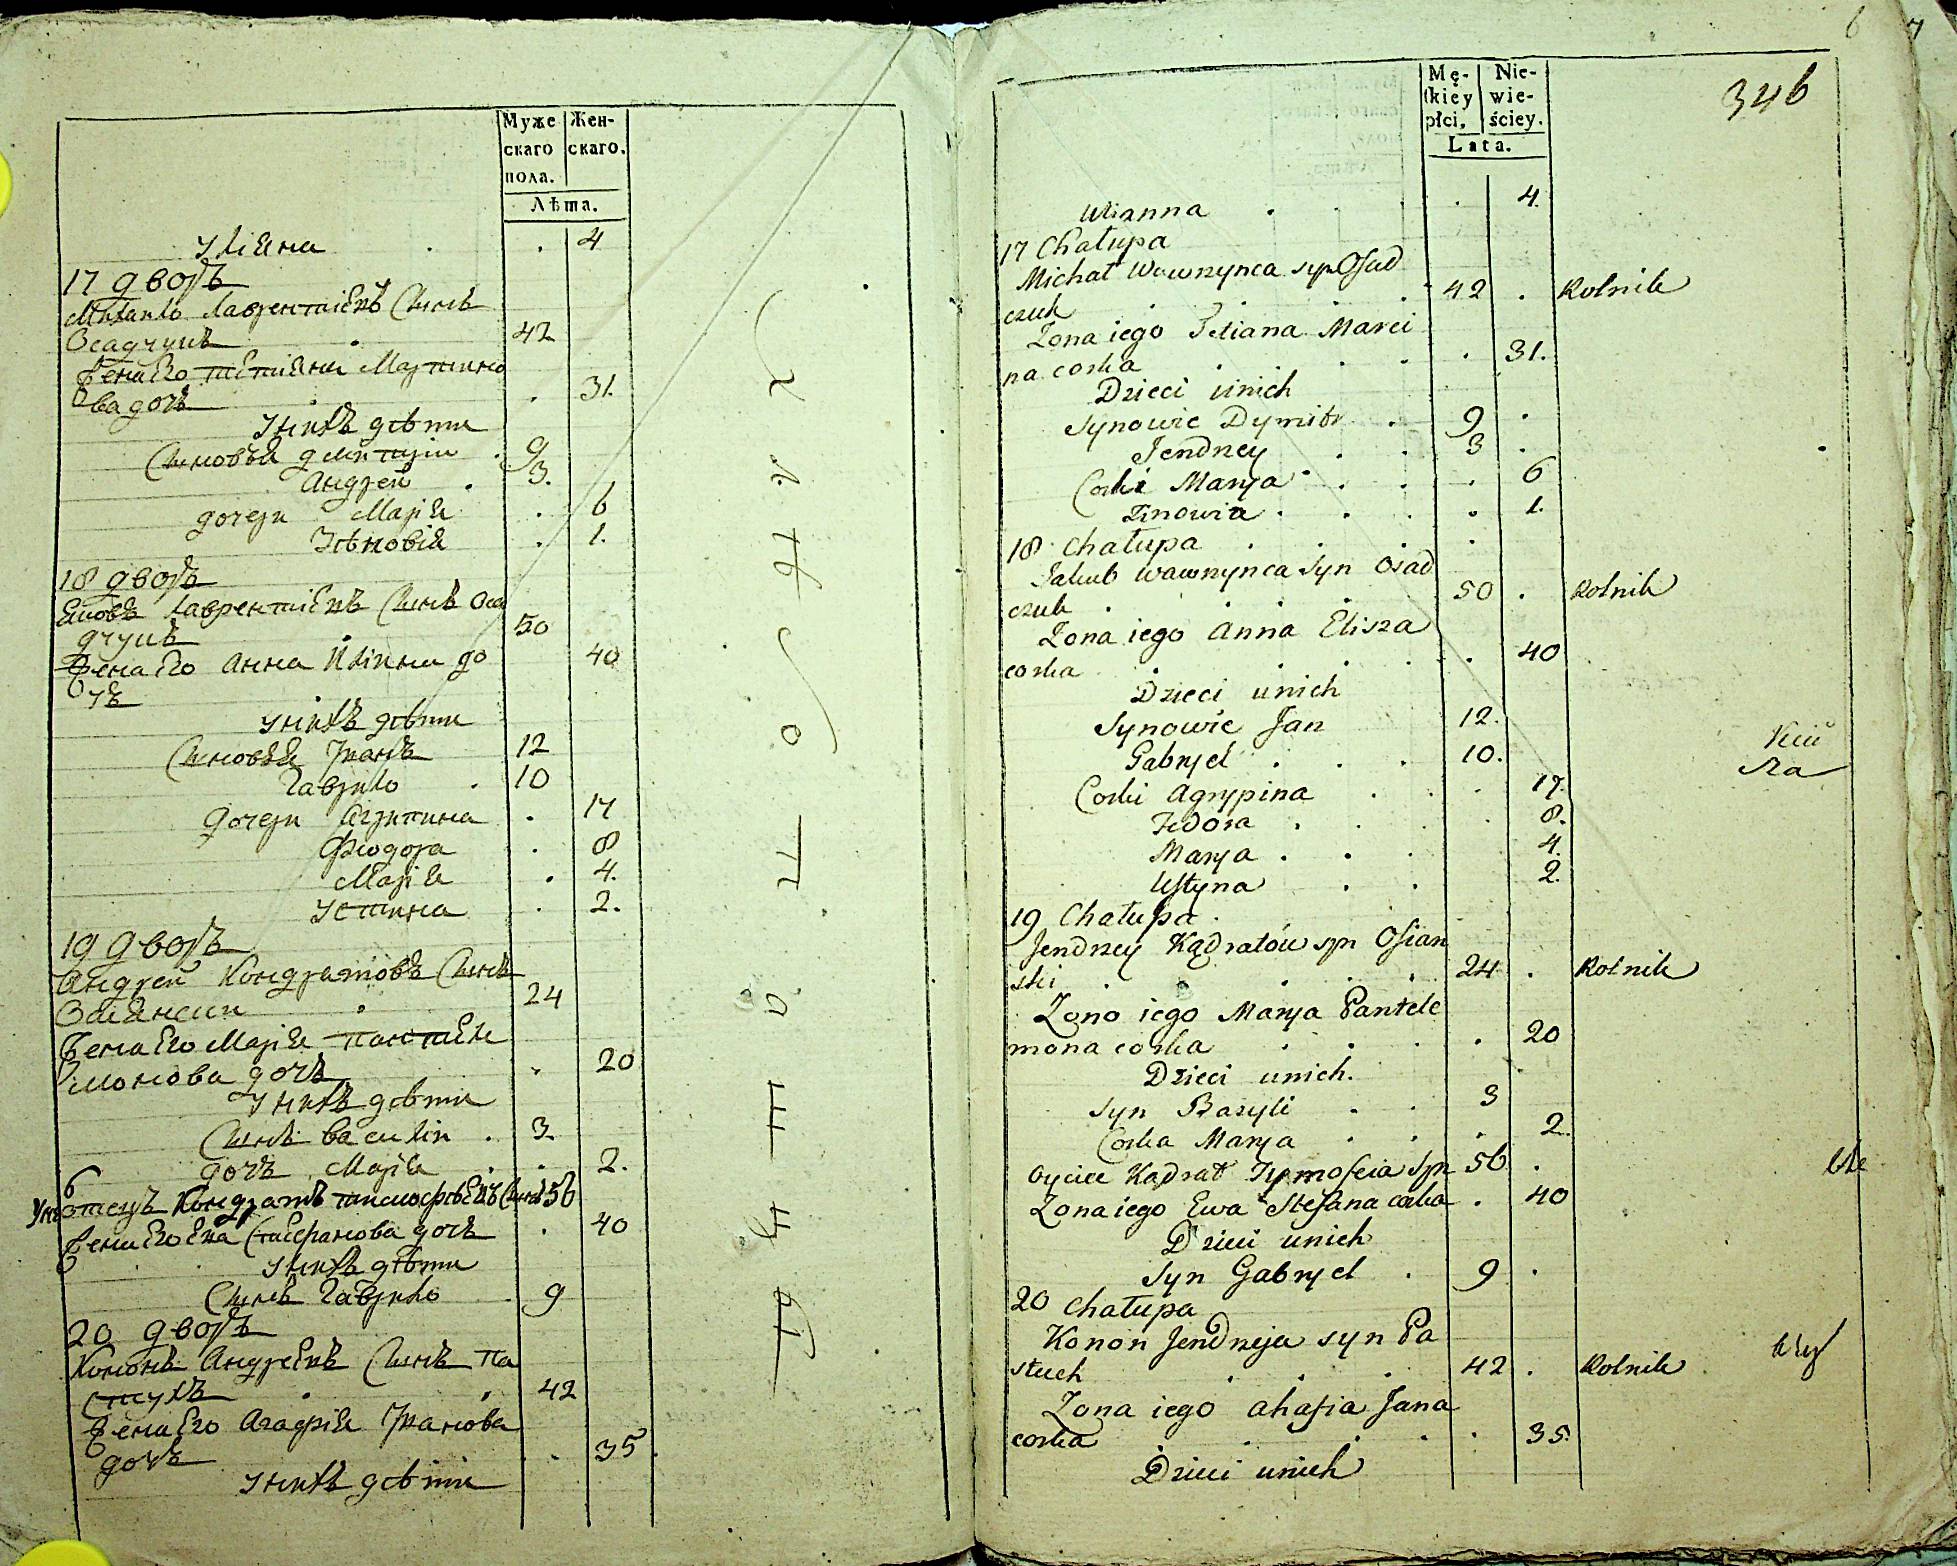 Муже
скаго
пола.
Жен-
скаго.
Лѣта.
Уліяна . . 4
17 дворъ
Михайло Лаврентіевъ Сынъ
Осадчукъ . 42
Жена Его Татіяна Мартино
ва дочь . 31.
У нихъ дѣти
Сыновья Дмитрій . 9
Андрей . 3.
дочери Марія . 6
Зѣновія . 1.
18 дворъ
Яковъ Лаврентіевъ Сынъ Оса
дчукъ . 50
Жена Его Анна Иліина до 40
чь
У нихъ дѣти
Сыновья Иванъ 12
Гаврило . 10
Дочери Агрипина . 17
Феодора . 8
Марія . 4.
Устина . 2.
19 Дворъ
Андрей Кондратовъ Сынъ
Осіянски . 24
Жена Его Марія Пантеле
имонова дочь . 20
У нихъ дѣти
Сынъ Василій . 3.
дочь Марія . . 2.
отецъ Кондратъ Тимофѣевъ Сынъ 56
Жена Его Ева Стефанова дочь . 40
У нихъ дѣти
Сынъ Гаврило . 9
20 дворъ
Кононъ Андреевъ Сынъ Па
стухъ . . 42
Жена Его Агафія Иванова
дочь . . 35.
У нихъ дѣти
346
Mę-
skiey
płci.
Nie-
wie-
ściey.
Lata.
Ulianna . . . . 4.
17 Chałupa
Michał Wawrzynca syn Osad
czuk . . . . 42 . Rolnik
Zona iego Tetiana Marci
na corka . . . . 31.
Dzieci unich
Synowie Dymitr . 9 .
Jendrzey . . 3 .
Corki Marya . . . . 6
Zinowia . . . . 1.
18 Chałupa . . . .
Jakub Wawrzynca Syn Osad
czuk . . . . 50 . Rolnik
Zona iego Anna Elisza
corka . . . . . 40
Dzieci unich
Synowie Jan 12.
Gabryel . . . 10.
Corki Agrypina . . . 17.
Fedora . . . . 8.
Marya . . . 4.
Ustyna . . 2.
19 Chałupa .
Jendrzey Kądratów syn Osian
ski . . . . 24 . Rolnik
Zono iego Marya Pantele
mona corka . . . . . 20
Dzieci unich.
Syn Bazyli . . 3
Corka Marya . . . 2.
oyciec Kądrat Tymofeia Syn 56 .
Zona iego Ewa Stefana corka . 40
Dzieci unich
Syn Gabryel . 9 .
20 Chałupa
Konon Jendrzeja syn Pa
stuch . . . 42 . Rolnik
Zona iego Ahafia Jana
corka . . . . . 35.
Dzieci unich